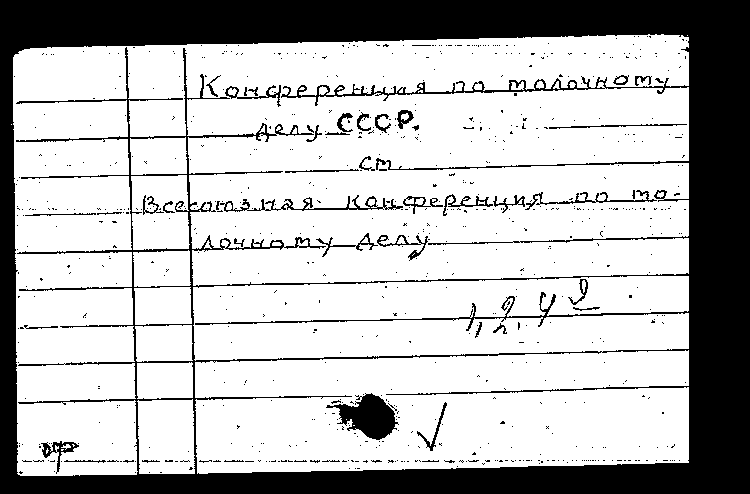 Конференция по молочному
делу СССР.
см.
Всесоюзная конференция по мо-
лочному делу
1, 2, 4 2